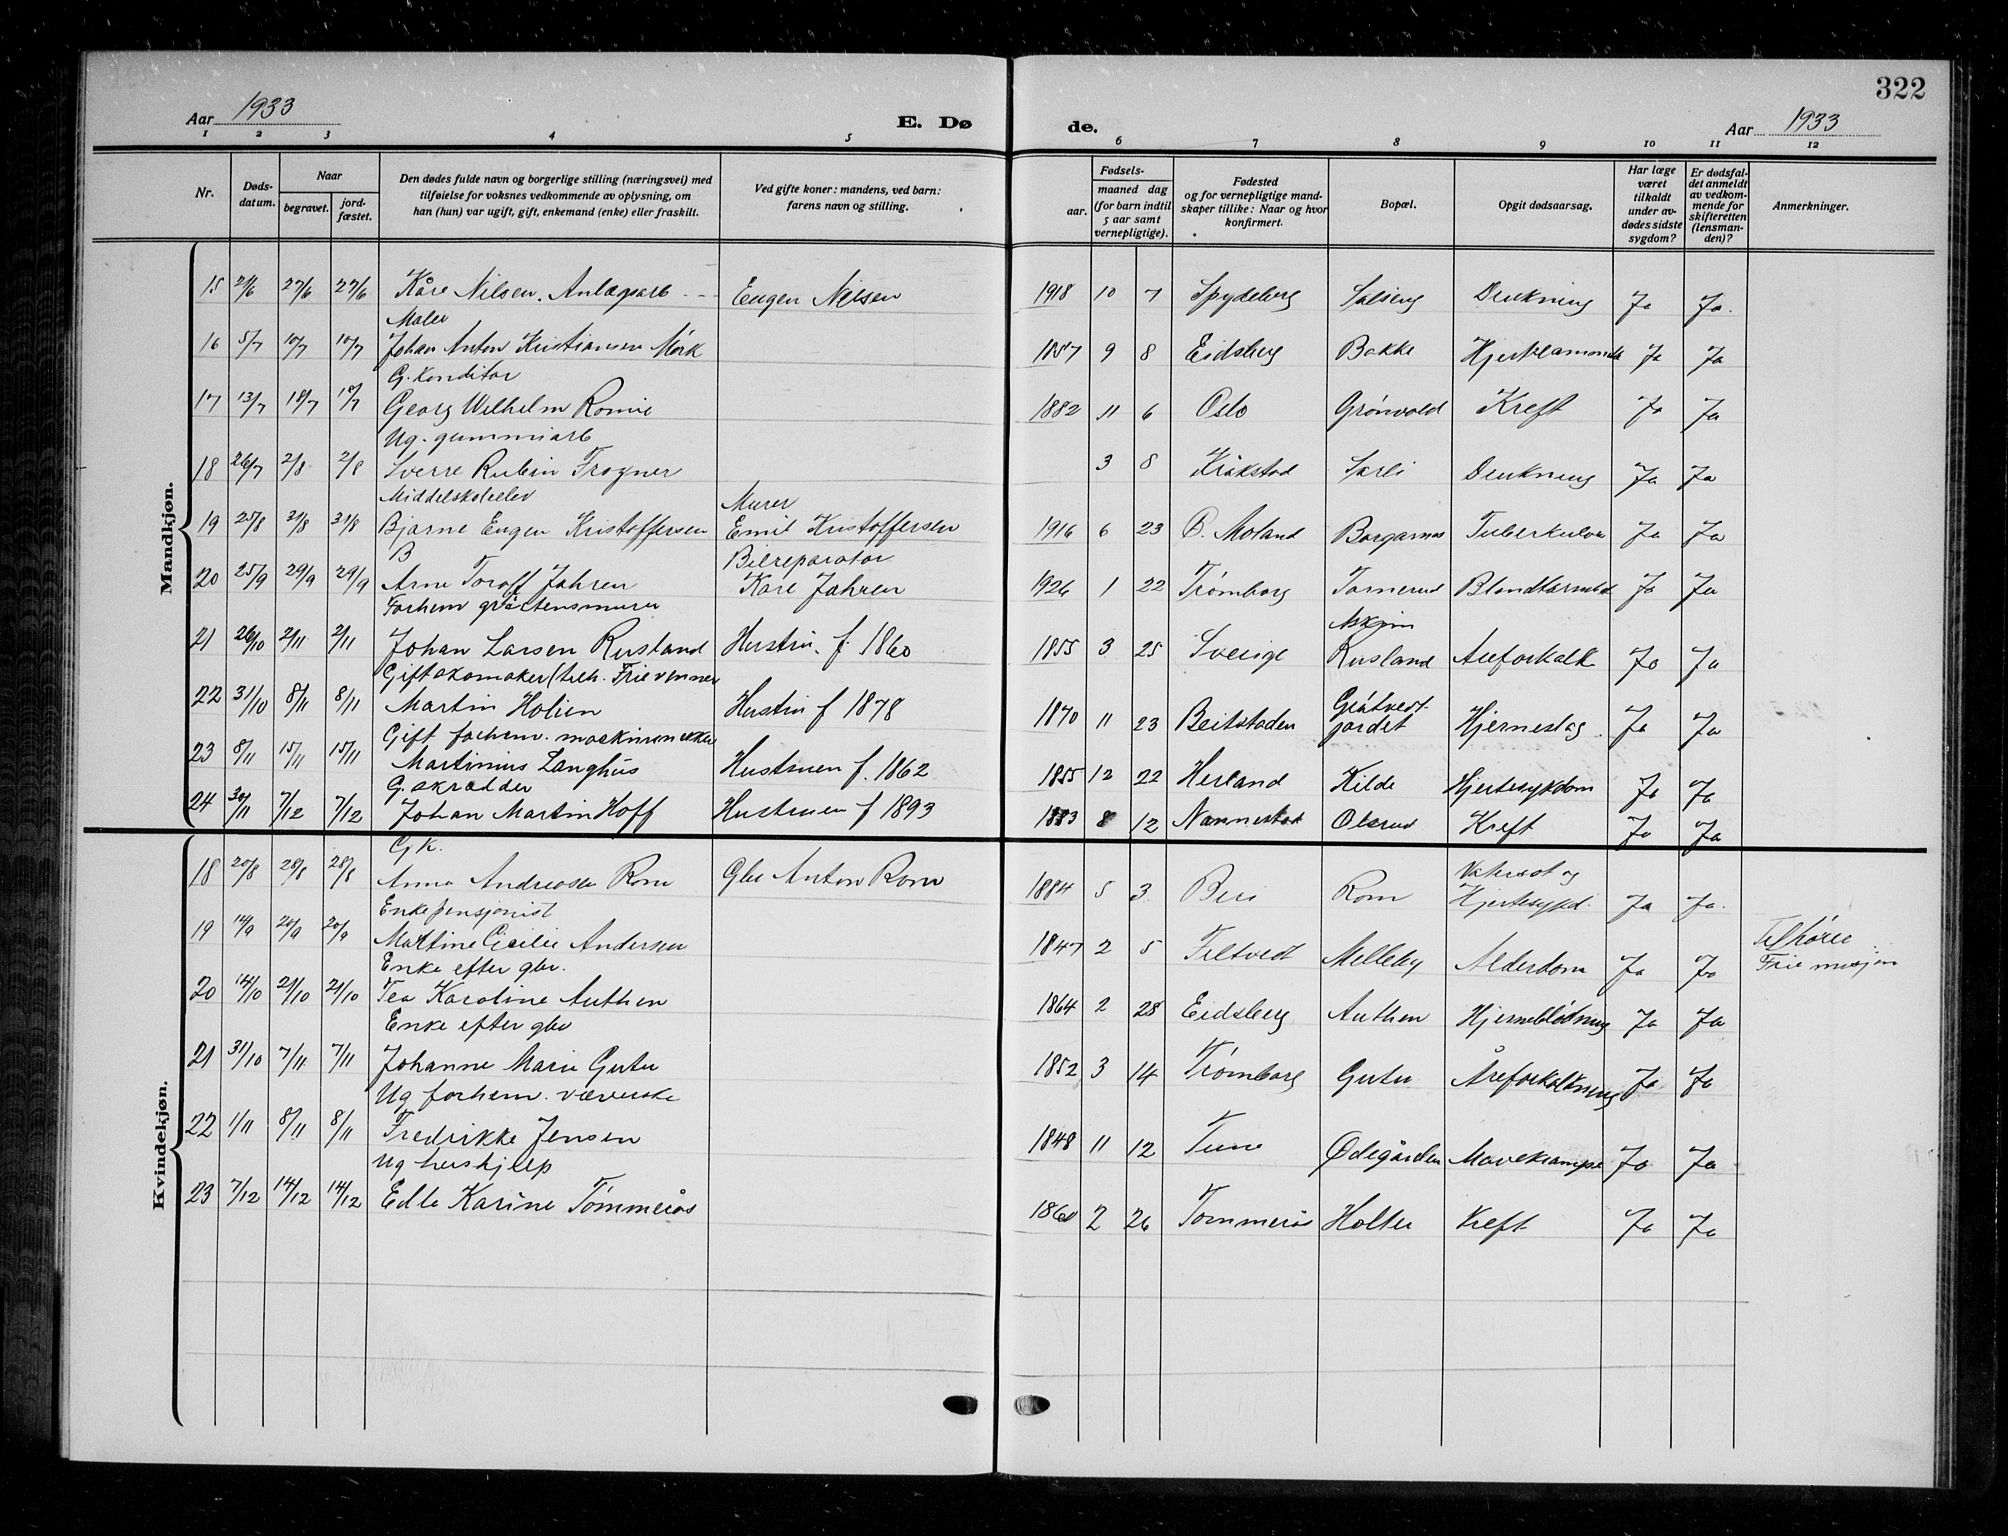 322
Aar 1933
E. Dø
de.
Aar 1933
1 2 3 4 5 6 7 8 9 10 11 12
Nr.
Døds-
datum.
Naar
begravet.
jord-
fæstet.
Den dødes fulde navn og borgerlige stilling (næringsvei) med
tilføielse for voksnes vedkommende av oplysning, om
han (hun) var ugift, gift, enkemand (enke) eller fraskilt.
Ved gifte koner: mandens, ved barn:
farens navn og stilling.
aar.
Fødsels-
maaned dag
(for barn indtil
5 aar samt
vernepligtige).
Fødested
og for vernepligtige mand-
skaper tillike: Naar og hvor
konfirmert.
Bopæl.
Opgit dødsaarsag.
Har læge
været
tilkaldt
under av-
dødes sidste
sygdom?
Er dødsfal-
det anmeldt
av vedkom-
mende for
skifteretten
(lensman-
den)?
Anmerkninger.
Mandkjøn.
15 21/6 27/6 27/6 Kåre Nilsen. Anlægsarb Eugen Nilsen 1918 10 7 Spydeberg Drukning Ja Ja.
Maler
16 5/7 10/7 10/7 Johan Anton Kristiansen Mørk 1857 9 8 Eidsberg Bakke Ja Ja
G. Konditor
17 13/7 18/7 18/7 Georg Wilhelm 1882 11 6 Oslo Grønvold Kreft Ja Ja
Ug. gummiarb
18 26/7 2/8 2/8 Sverre Rubin Frogner 3 8 Kråkstad Drukning Ja Ja
Middelskoleelev Murer
19 25/8 31/8 31/8 Bjarne Eugen Kristoffersen Emil Kristoffersen 1916 6 23 Ø. Moland Ja Ja
B Bilreparatør
20 25/9 29/9 29/9 Arne Toralf Jahren Kåre Jahren 1926 1 22 Trømborg Ja Ja
Forhem gråstensmurer Askim
21 26/10 2/11 2/11 Johan Larsen Rusland Hustru. f. 1860 1855 3 25 Sverige Rusland Åreforkalk Ja Ja
Gift skomaker (tilh. Frievenner
22 31/10 8/11 8/11 Martin Holien Hustru f 1878 1870 11 23 Beitstaden Gråtvedt-
jordet Hjerneslag Ja Ja
Gift forhem. maskinsnekker
23 8/11 15/11 15/11 Martinius Langhus Hustruen f. 1862 1855 12 22 Herland Kilde Hjertesykdom Ja Ja
G. skrædder
24 30/11 7/12 7/12 Johan Martin Hoff Hustruen f 1893 1883 8 12 Nannestad Olsrud Kreft Ja Ja
Kvindekjøn.
Gk. Vatersot og
18 20/8 28/8 28/8 Anna Andreasen Rom Gbr Anton Rom 1884 5 3 Biri Rom Hjertesykd. Ja Ja.
Enkepensjonist
19 14/9 20/9 20/9 Martine Cicilie Andersen 1847 2 5 Filtvedt Melleby Alderdom Ja Ja Tilhører
Frie misjon
Enke efter gbr.
20 14/10 21/10 21/10 Tea Karoline Authen 1864 2 28 Eidsberg Authen Hjerneblødning Ja Ja
Enke efter gbr
21 31/10 7/11 7/11 Johanne Marie Guter 1852 3 14 Trømborg Guter Åreforkalkning Ja Ja
Ug forhem. væverske
22 1/11 8/11 8/11 Fredrikke Jensen 1848 11 12 Tune Ødegården Mavekrampe Ja Ja
Ug hushjelp
23 7/12 14/12 14/12 Edle Karine Tømmerås 2 26 Tømmerås Holter Kreft Ja Ja